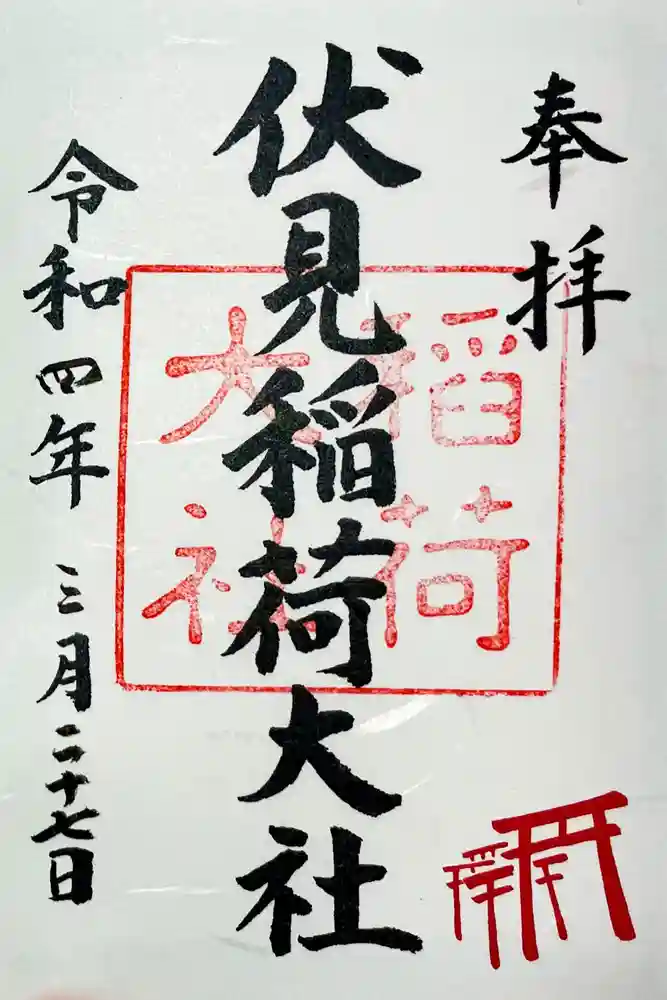 奉拝
伏見稲荷大社
稲荷
大社
令和四年三月二十七日